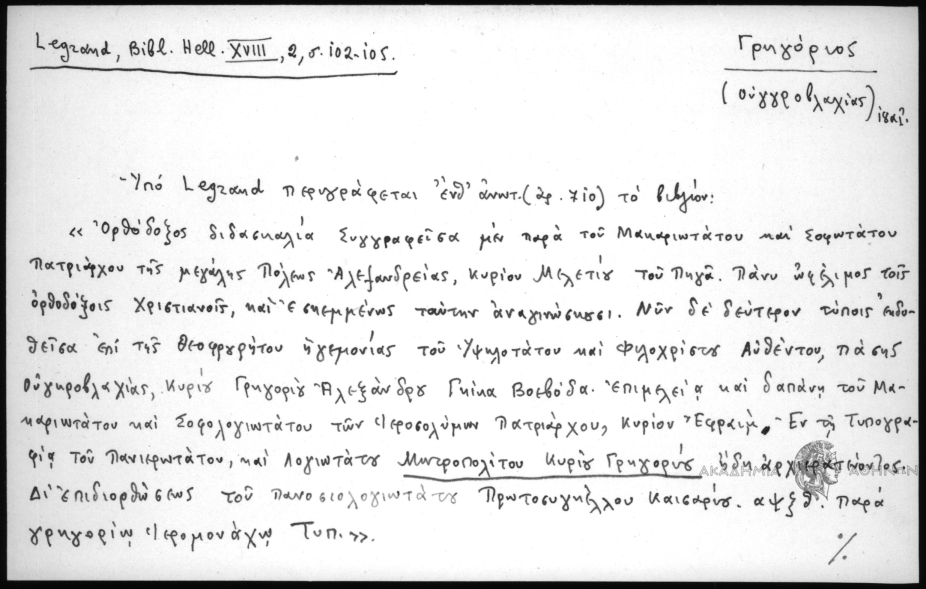 Legrand, Bibl. Hell. XVIII, 2, σ. 102-105.
Γρηγόριος
(Οὑγγροβλαχίας)
-Ὑπό Legrand περιγράφεται ἐνθ' ἀνωτ. (ἀρ. 710) τό βιβλίον:
«Ὀρθόδοξος διδασκαλία Συγγραφεῖσα μέν παρά τοῦ Μακαριωτάτου καί Σοφωτάτου
Πατριάρχου τῆς μεγάλης Πόλεως Ἀλεξανδρείας, Κυρίου Μελετίου τοῦ Πηγᾶ. Πάνυ ὠφέλιμος τοῖς
ὀρθοδόξοις Χριστιανοῖς, καί Ἐσκεμμένως ταύτην ἀναγινώσκουσι. Νῦν δέ δεύτερον τύποις ἐκδο-
θεῖσα ἐπί τῆς θεοφρουρήτου ἡγεμονίας τοῦ Ὑψηλοτάτου καί Φιλοχρίστου Αὐθέντου, πάσης
Οὑγκροβλαχίας, Κυρίου Γρηγορίου Ἀλεξάνδρου Γκίκα Βοεβόδα. Ἐπιμελείᾳ καί δαπάνῃ τοῦ Μα-
καριωτάτου καί Σοφολογιωτάτου τῶν Ἱεροσολύμων Πατριάρχου, Κυρίου Ἐφραίμ. Ἐν τῇ Τυπογρα-
φίᾳ τοῦ Πανιερωτάτου, καί Λογιωτάτου Μητροπολίτου Κυρίου Γρηγορίου ὅδη ἀρχιερατεύοντος.
Δι' Ἐπιδιορθώσεως τοῦ Πανοσιολογιωτάτου Πρωτοσυγκέλλου Καισαρίου. αψξθ. Παρά
γρηγορίῳ Ἱερομονάχῳ Τυπ.».
ΑΚΑΔΗΜΙΑ ΑΘΗΝΩΝ
./.